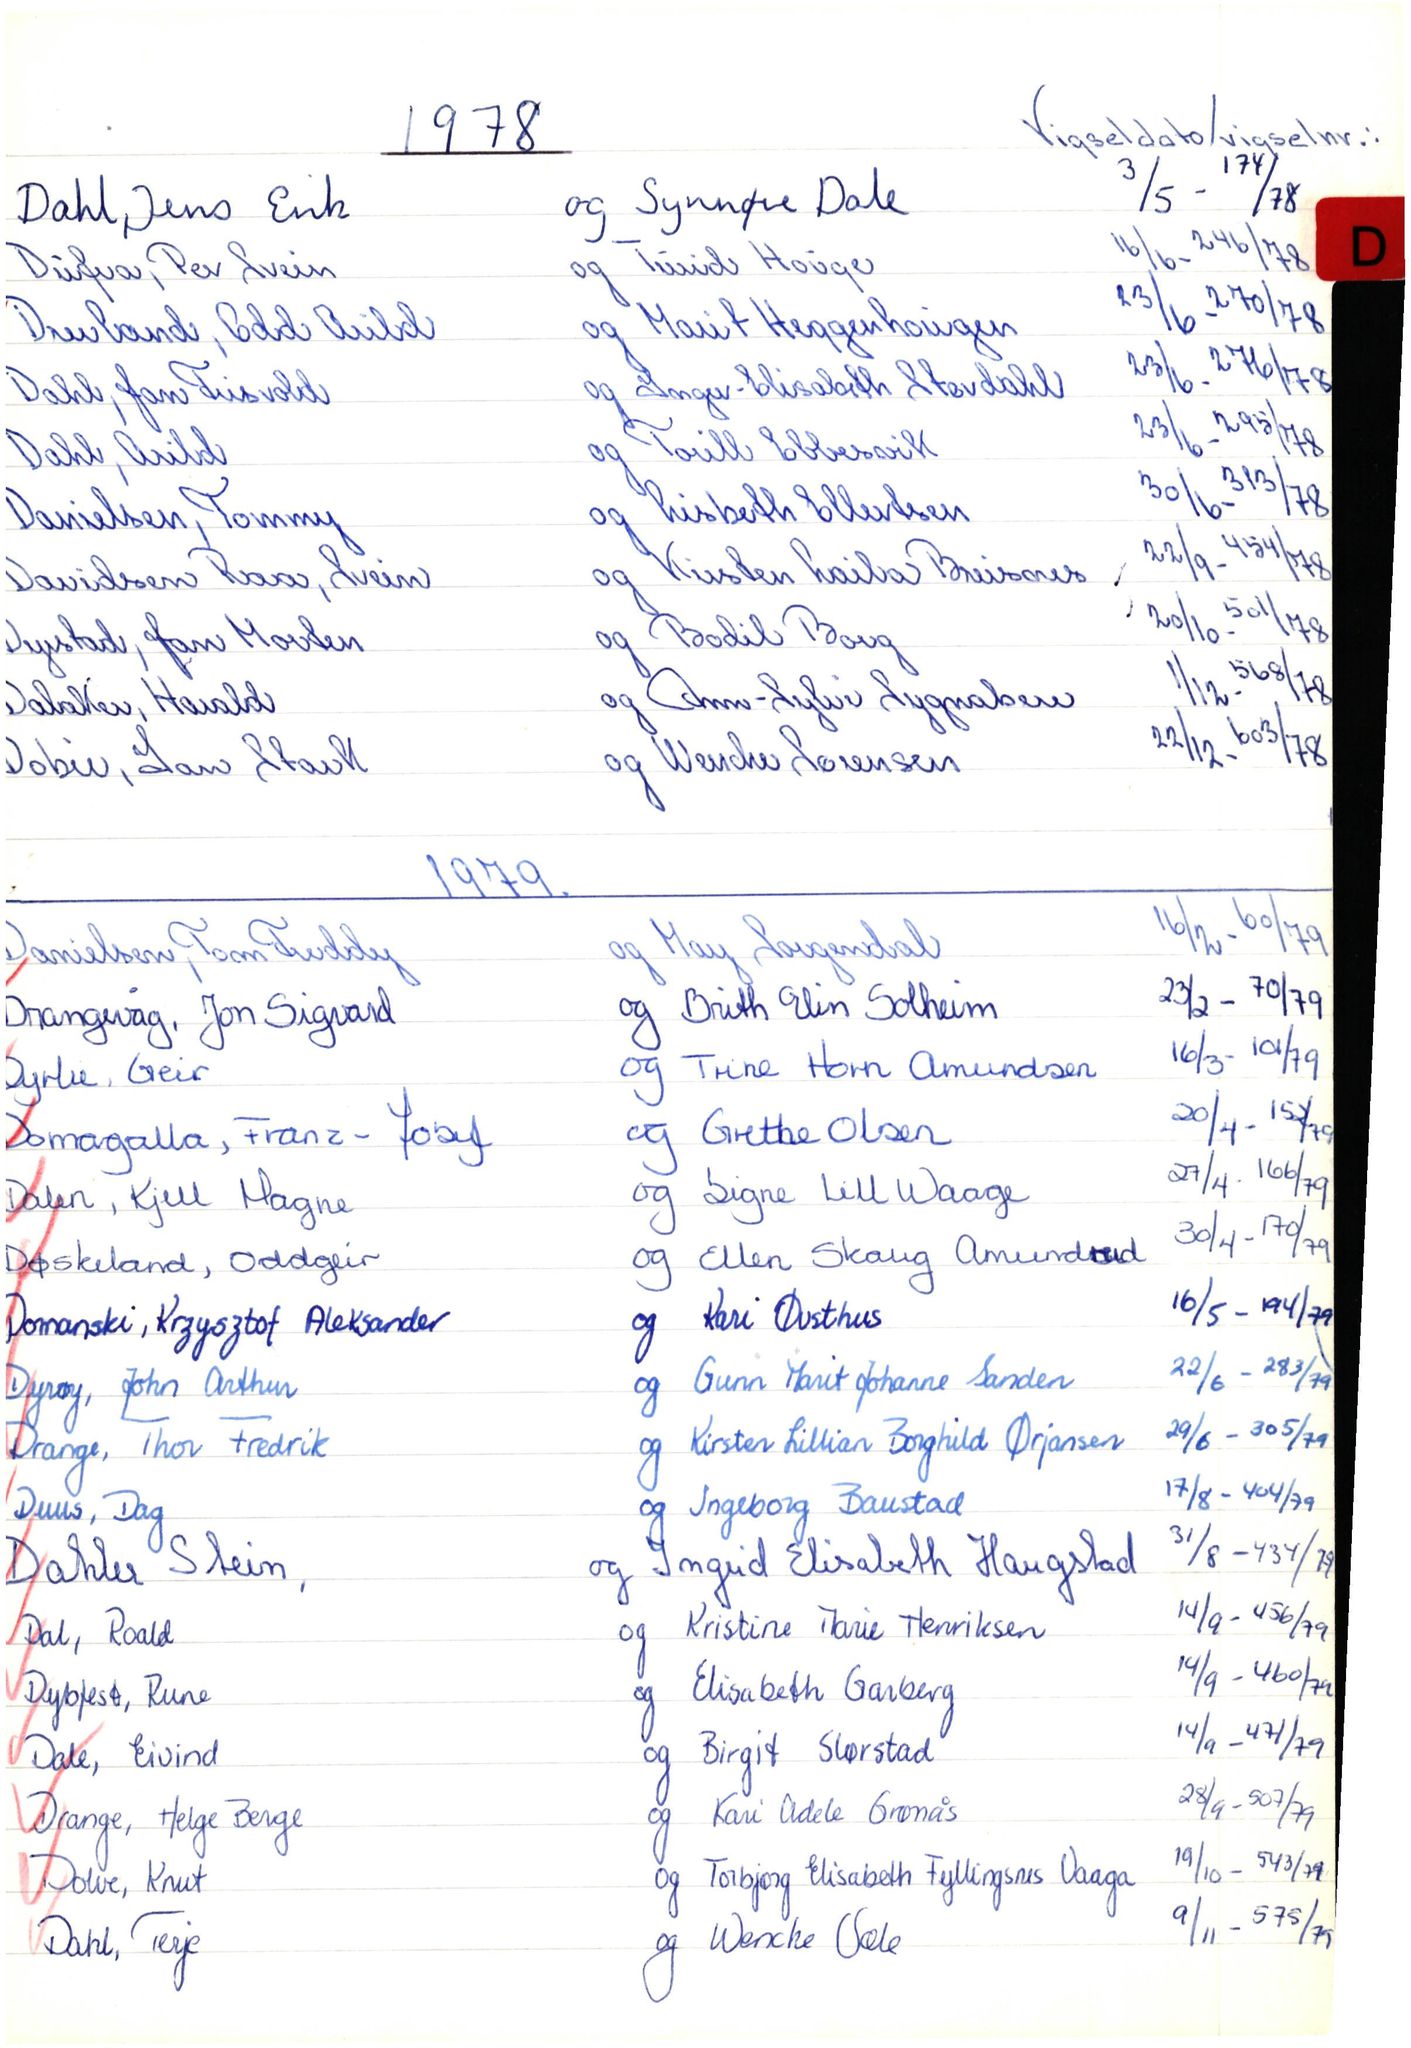 1978
Vigseldato/vigselnr.:
Dahl, Jens Erik og Synnøve Dale 3/5 - 174/78
D
Per Svein og Turid Hauge 16/6 - 246/78
Odd Arild og Marit Heggenhougen 23/6 - 270/78
Dahl, Jan Trisvold og Inger-Elisabeth Stavdahl 23/6 - 276/78
Dahl, Arild og Torill Ebbesvik 23/6 - 295/78
Danielsen, Tommy og Lisbeth Ellertsen 30/6 - 313/78
Davidsen Raa, Svein og Kirsten Laila Breisnes 22/9 - 454/78
Dystad, Jan Morten og Bodil Borg 20/10 - 501/78
Harald og Ann-Sylvi 1/12 - 568/78
Dobie, Ian Stark og Wenche Sørensen 22/12 - 603/78
1979.
Danielsen, Tom Freddy og May Sørgendal 16/2 - 60/79
Drangevåg, Jon Sigvard og Brith Elin Solheim 23/2 - 70/79
Dyrlie, Geir og Trine Horn Amundsen 16/3 - 101/79
Domagalla, Franz-Josef og Grethe Olsen 20/4 - 152/79
Dalen, Kjell Magne og Signe Lill Waage 27/4 - 166/79
Døskeland, Oddgeir og Ellen Skaug Amundrud 30/4 - 170/79
Domanski, Krzysztof Aleksander og Kari Øvsthus 16/5 - 194/79
Dyrøy, John Arthur og Gunn Marit Johanne Sanden 22/6 - 283/79
Drange, Thor Fredrik og Kirsten Lillian Borghild Ørjansen 29/6 - 305/79
Duus, Dag og Ingeborg Baustad 17/8 - 404/79
Dahler Stein, og Ingrid Elisabeth Haugstad 31/8 - 434/79
Dal, Roald og Kristine Marie Henriksen 14/9 - 456/79
Dybfest, Rune og Elisabeth Garberg 14/9 - 460/79
Dale, Eivind og Birgit Slørstad 14/9 - 471/79
Drange, Helge Berge og Kari Adele Grønås 28/9 - 507/79
Dolve, Knut og Torbjørg Elisabeth Fyllingsnes Vaaga 19/10 - 543/79
Dahl, Terje og Wencke Vale 9/11 - 575/79